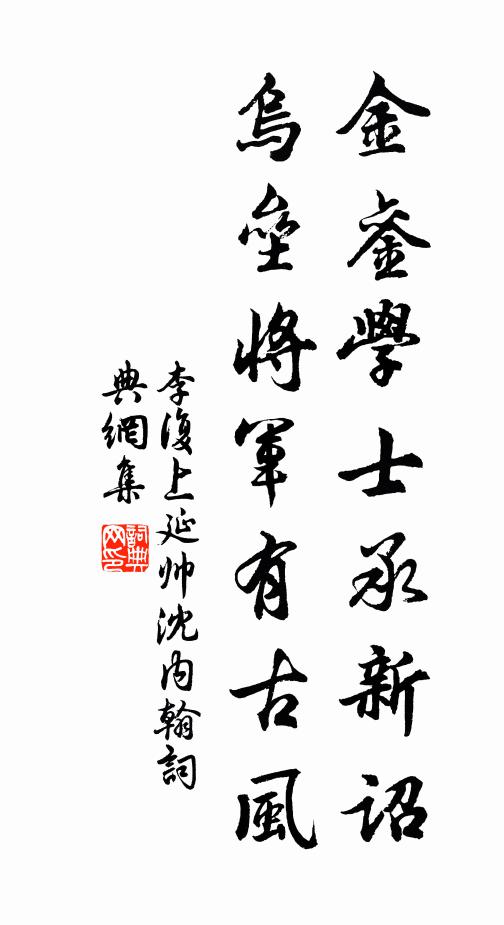 金銮學士承新詔
烏壘將軍有古風
李復上延帅沈内翰詞
典網集
詞典
网印